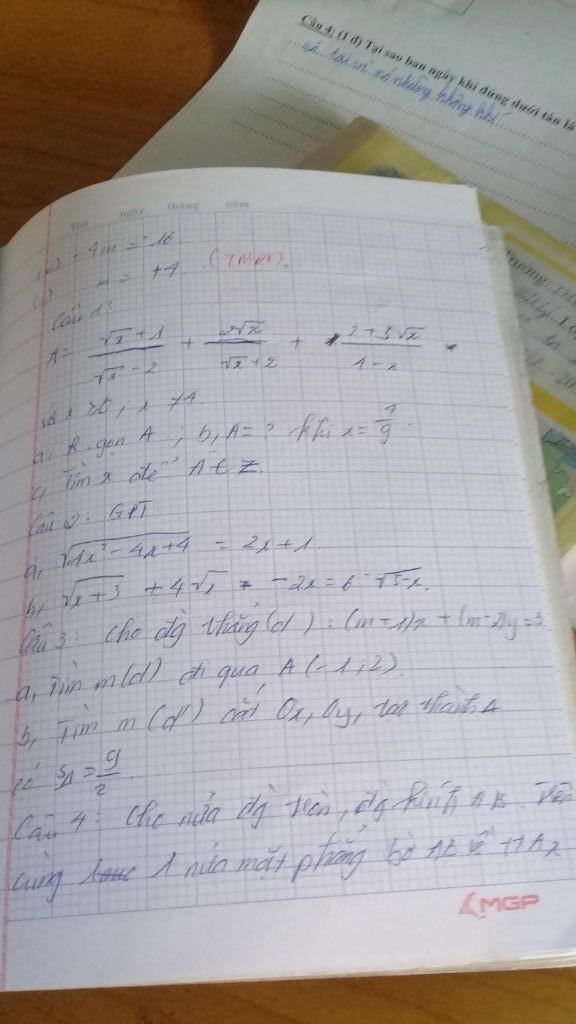 Câu 4: (1 đ) Tại sao ban ngày khi đứng dưới tán lá
Thứ ngày tháng năm
(=) -4m = -16
(=) m = +4 (TMĐK).
Câu 1:
A = (√x + 1)/(√x - 2) + (2√x)/(√x + 2) + (2 + 5√x)/(4 - x)
với x ≥ 0, x ≠ 4.
a, R. gọn A ; b, A = ? khi x = 4/9.
c, Tìm x để A ∈ Z.
Câu 2: GPT
a, √(4x² - 4x + 4) = 2x + 1.
b, √(x + 3) + 4√x - 2x = 6 - √(5 - x).
Câu 3: Cho đg thẳng (d): (m - 1)x + (m - 2)y = 3
a, Tìm m (d) đi qua A(-1; 2).
b, Tìm m (d) cắt Ox, Oy, tạo thành Δ
có SΔ = 9/2.
Câu 4: Cho nửa đg tròn, đg kính AB. Trên
cùng 1 nửa mặt phẳng bờ AB vẽ tt Ax
MGP